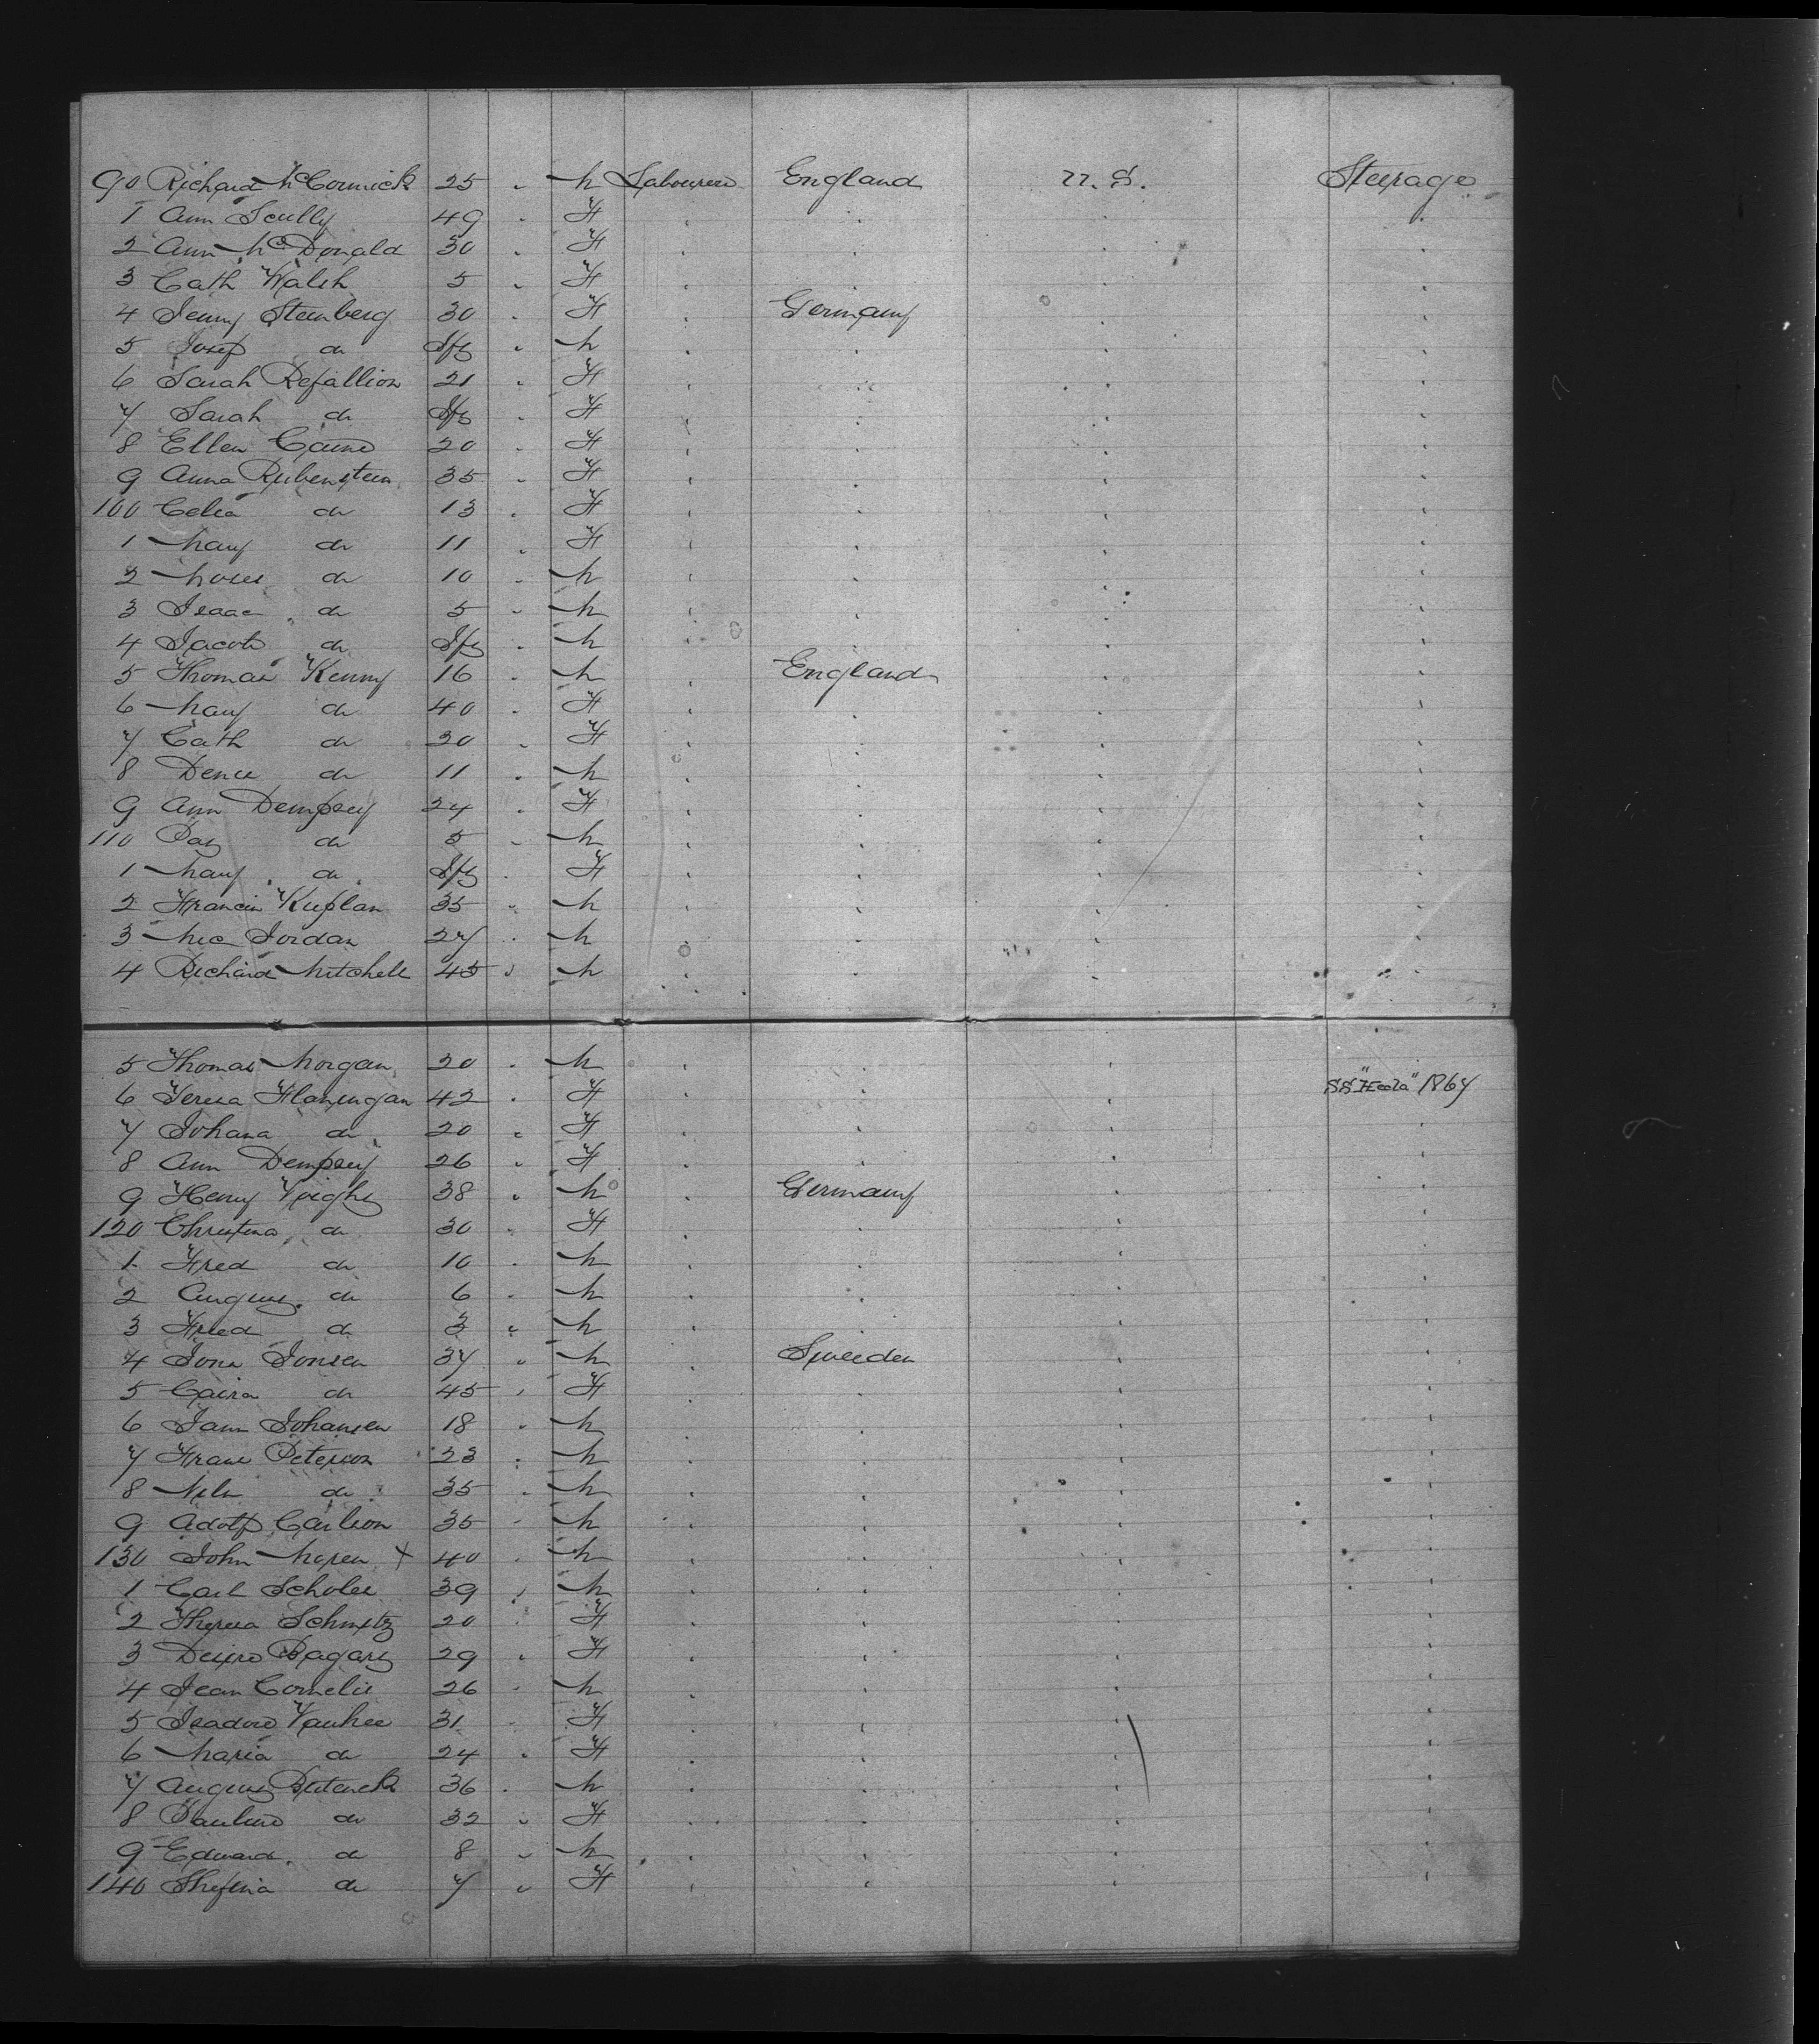 90 Richard McCormick 25 " M Labourers England U.S. Steerage
1 Ann Scully 49 " F
2 Ann McDonald 30 " F
3 Cath Walsh 5 " F
4 Jenny Steinberg 30 " F Germany
5 Josef do Inf " M
6 Sarah Refallion 21 " F
7 Sarah do Inf " F
8 Ellen Caine 20 " F
9 Anna Rubenstein 35 " F
100 Celia do 13 " F
1 Mary do 11 " F
2 Moses do 10 " M
3 Isaac do 5 " M
4 Jacob do Inf " M
5 Thomas Kenny 16 " M England
6 Mary do 40 " F
7 Cath do 20 " F
8 Denis do 11 " M
9 Ann Dempsey 24 " F
110 Pat do 5 " M
1 Mary do Inf " F
2 Francis Kuplan 35 " M
3 Mic Jordan 27 " M
4 Richard Mitchell 45 " M
5 Thomas Morgan 20 " M
SS "Hecla" 1867
6 Teresa Flaningan 42 " F
7 Johana do 20 " F
8 Ann Dempsey 26 " F
9 Henry Voight 38 " M Germany
120 Christina do 30 " F
1 Fred do 10 " M
2 August do 6 " M
3 Fried do 3 " M
4 Jons Jonsen 37 " M Sweeden
5 Caisa do 45 " F
6 Jann Johansen 18 " M
7 Frans Peterson 23 " M
8 Nils do 35 " M
9 Adolf Carlson 35 " M
130 John x 40 " M
1 Carl 39 " M
2 Theresa Schmitz 20 " F
3 29 " F
4 Jean Cornelis 26 " M
5 Isadore 31 " F
6 Maria do 24 " F
7 August 36 " M
8 Pauline do 32 " F
9 Edward do 8 " M
140 do 7 " F